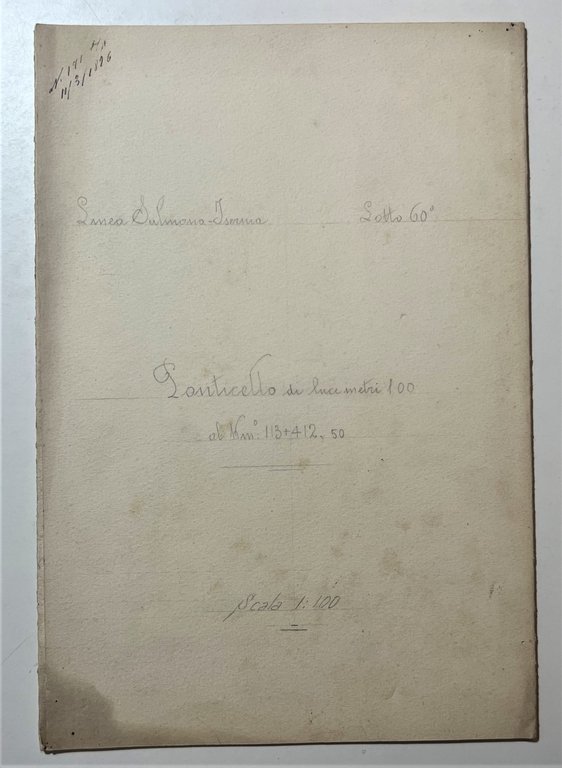 N. 171
11/3/1896
Linea Sulmona-Isernia Lotto 60°
Ponticello di luce metri 1.00
al Km° 113+412,50
Scala 1:100